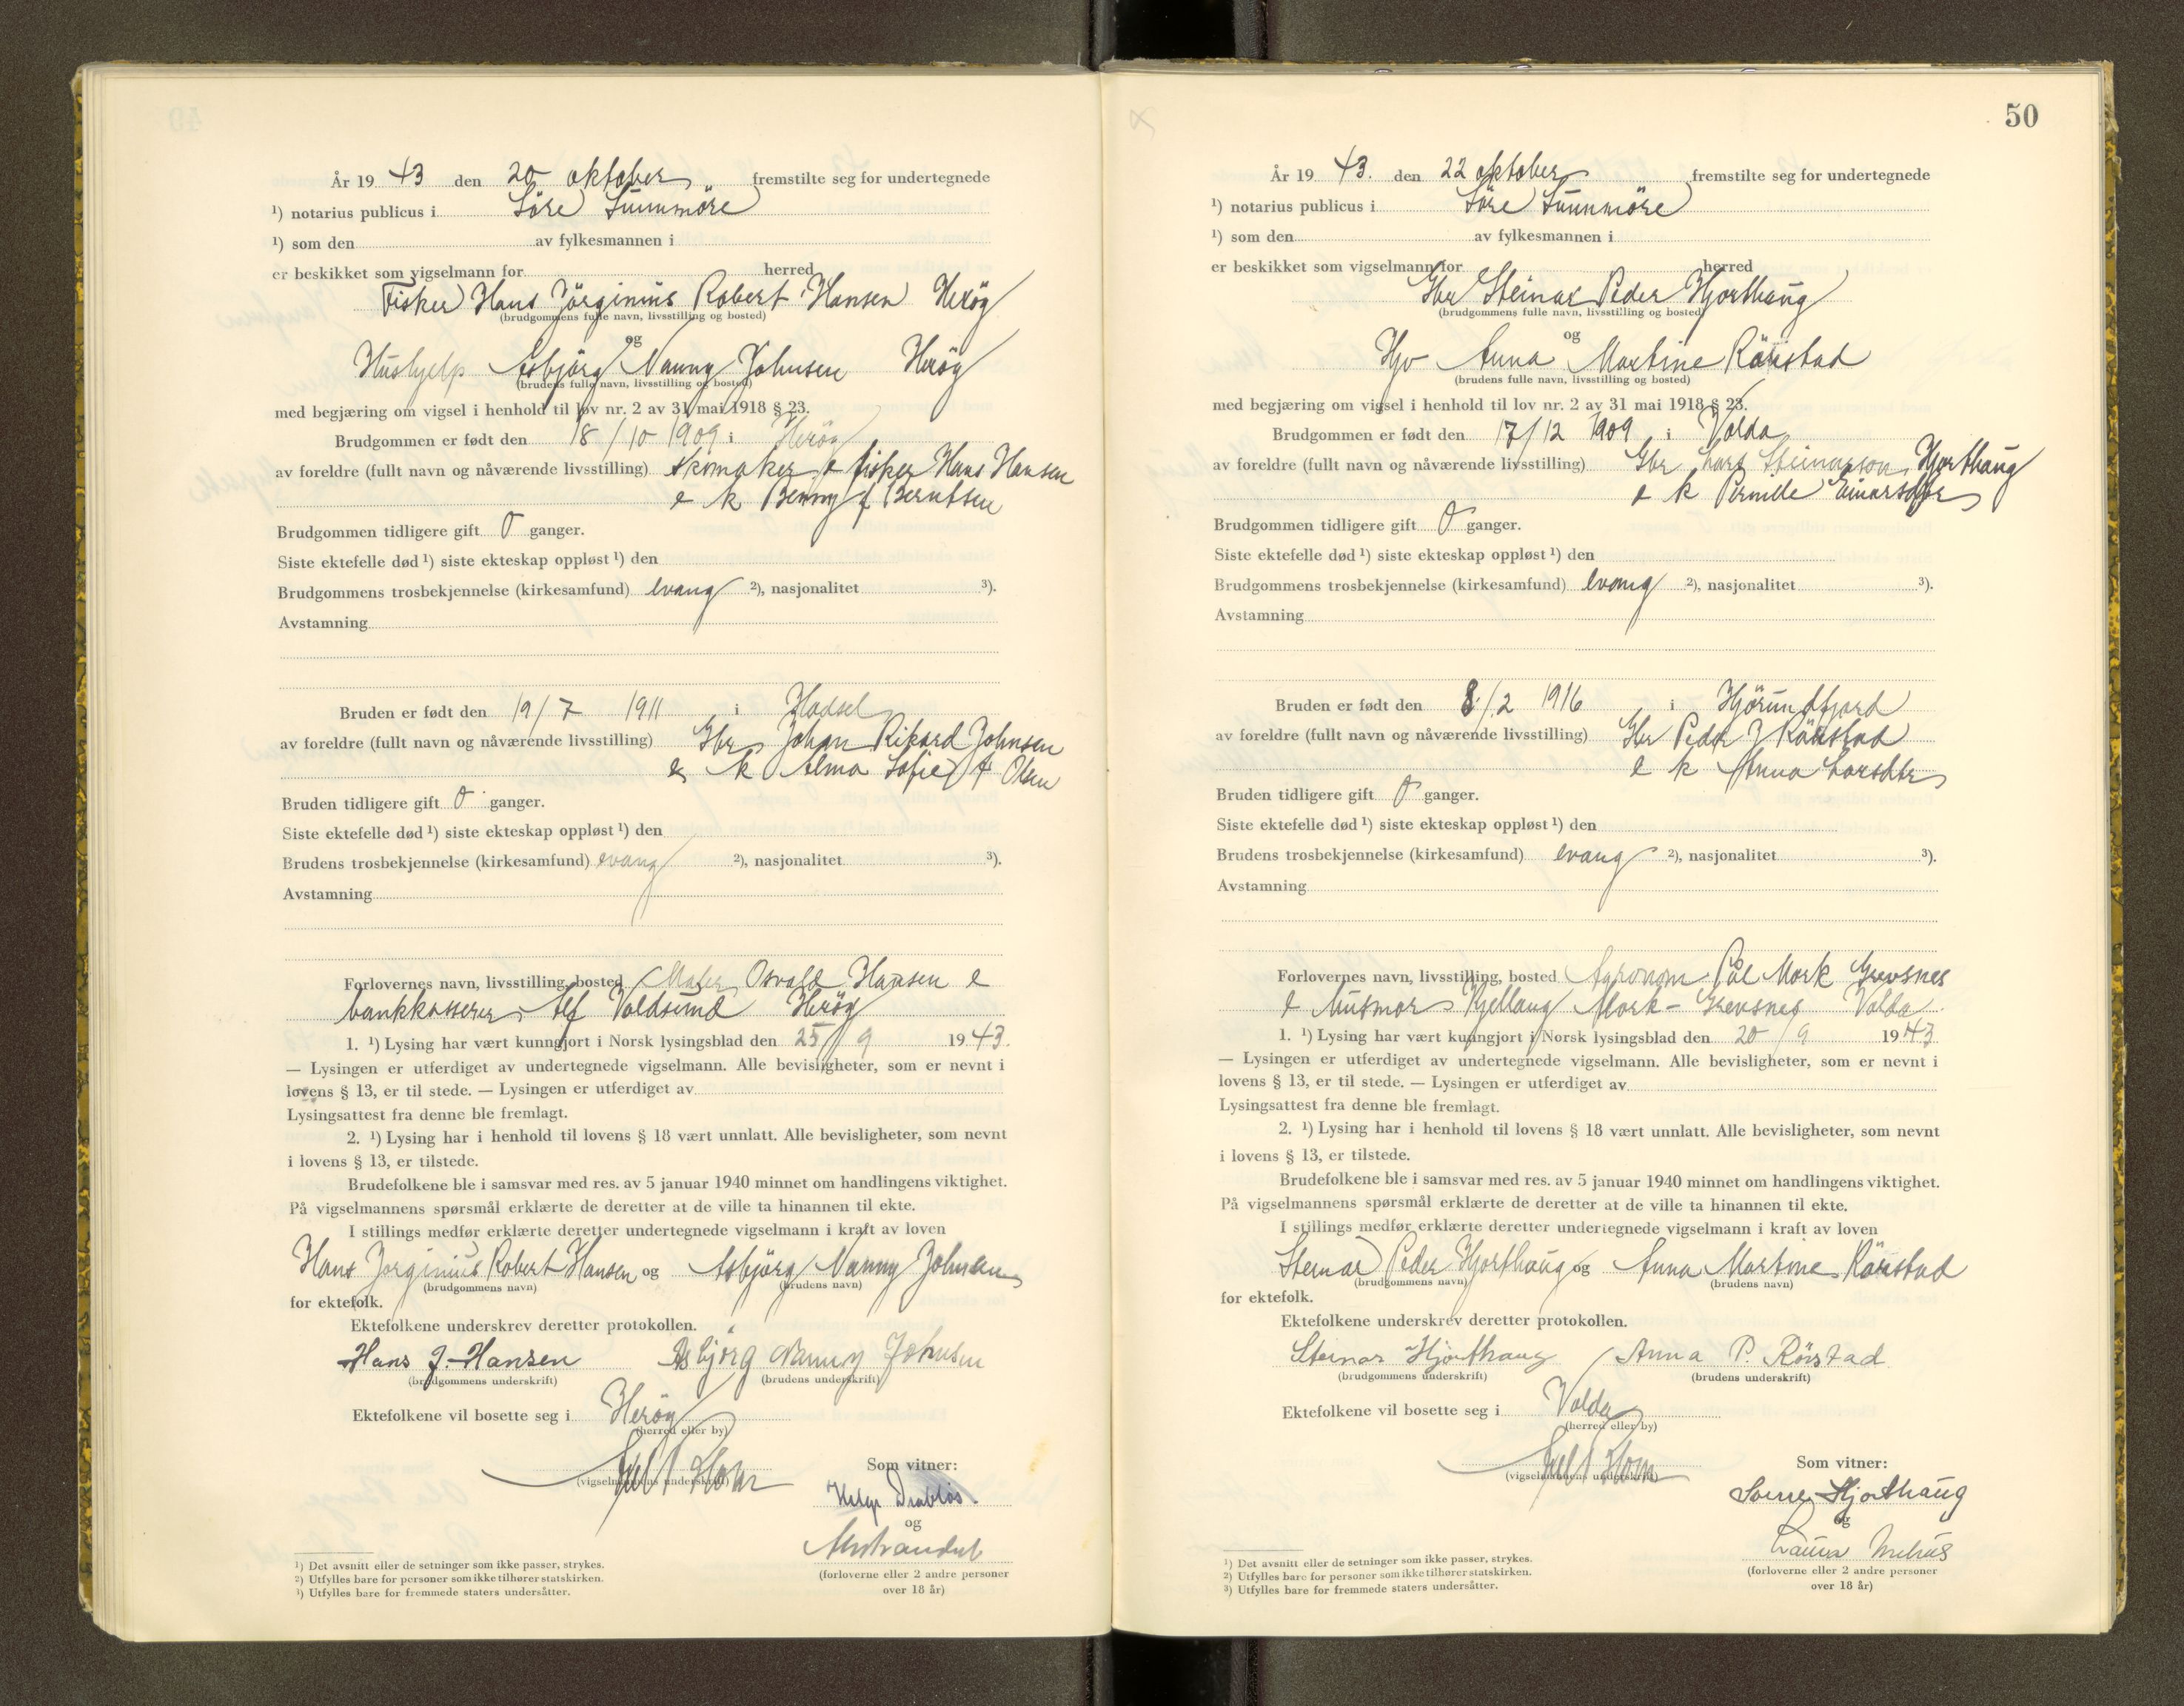 År 19 43 den 20 oktober fremstilte seg for undertegnede
¹) notarius publicus i Söre Sunnmöre
¹) som den av fylkesmannen i
er beskikket som vigselmann for herred
Fisker Hans Jörginius Robert Hansen Heröy
(brudgommens fulle navn, livsstilling og bosted)
og
Hushjelp Asbjörg Nanny Johnsen Heröy
(brudens fulle navn, livsstilling og bosted)
med begjæring om vigsel i henhold til lov nr. 2 av 31 mai 1918 § 23.
Brudgommen er født den 18/10 1909 i Heröy
av foreldre (fullt navn og nåværende livsstilling) skomaker & fisker Hans Hansen
e k Benny f Berntsen
Brudgommen tidligere gift 0 ganger.
Siste ektefelle død ¹) siste ekteskap oppløst ¹) den
Brudgommens trosbekjennelse (kirkesamfund) evang ²), nasjonalitet ³).
Avstamning
Bruden er født den 19/7 1911 i Hadsel
av foreldre (fullt navn og nåværende livsstilling) Gbr Johan Rikard Johnsen
e k Alma Sofie f Olsen
Bruden tidligere gift 0 ganger.
Siste ektefelle død ¹) siste ekteskap oppløst ¹) den
Brudens trosbekjennelse (kirkesamfund) evang ²), nasjonalitet ³).
Avstamning
Forlovernes navn, livsstilling, bosted Maler Osvald Hansen e
bankkasserer Alf Voldsund Heröy
1. ¹) Lysing har vært kunngjort i Norsk lysingsblad den 25/9 19 43.
— Lysingen er utferdiget av undertegnede vigselmann. Alle bevisligheter, som er nevnt i
lovens § 13, er til stede. — Lysingen er utferdiget av
Lysingsattest fra denne ble fremlagt.
2. ¹) Lysing har i henhold til lovens § 18 vært unnlatt. Alle bevisligheter, som nevnt
i lovens § 13, er tilstede.
Brudefolkene ble i samsvar med res. av 5 januar 1940 minnet om handlingens viktighet.
På vigselmannens spørsmål erklærte de deretter at de ville ta hinannen til ekte.
I stillings medfør erklærte deretter undertegnede vigselmann i kraft av loven
Hans Jorginius Robert Hansen og Asbjörg Nanny Johnsen
(brudgommens navn) (brudens navn)
for ektefolk.
Ektefolkene underskrev deretter protokollen.
Hans J. Hansen Asbjörg Nanny Johnsen
(brudgommens underskrift) (brudens underskrift)
Ektefolkene vil bosette seg i Heröy
(herred eller by)
(vigselmannens underskrift)
Som vitner:
Helge Drabløs.
og
(forloverne eller 2 andre personer
over 18 år)
¹) Det avsnitt eller de setninger som ikke passer, strykes.
²) Utfylles bare for personer som ikke tilhører statskirken.
³) Utfylles bare for fremmede staters undersåtter.
50
År 19 43. den 22 oktober fremstilte seg for undertegnede
¹) notarius publicus i Söre Sunnmöre
¹) som den av fylkesmannen i
er beskikket som vigselmann for herred
Gbr Steinar Peder Hjorthaug
(brudgommens fulle navn, livsstilling og bosted)
og
Hjv Anna Martine Rörstad
(brudens fulle navn, livsstilling og bosted)
med begjæring om vigsel i henhold til lov nr. 2 av 31 mai 1918 § 23.
Brudgommen er født den 17/12 1909 i Volda
av foreldre (fullt navn og nåværende livsstilling) Gbr Lars Steinarson Hjorthaug
e k Pernille Einarsdtr
Brudgommen tidligere gift 0 ganger.
Siste ektefelle død ¹) siste ekteskap oppløst ¹) den
Brudgommens trosbekjennelse (kirkesamfund) evang ²), nasjonalitet ³).
Avstamning
Bruden er født den 8/2 1916 i Hjörundfjord
av foreldre (fullt navn og nåværende livsstilling) Gbr Peder J Rörstad
e k Anna Larsdtr
Bruden tidligere gift 0 ganger.
Siste ektefelle død ¹) siste ekteskap oppløst ¹) den
Brudens trosbekjennelse (kirkesamfund) evang ²), nasjonalitet ³).
Avstamning
Forlovernes navn, livsstilling, bosted Agronom Pål Mork Grevsnes
e husmor Kjellaug Mork - Grevsnes Volda
1. ¹) Lysing har vært kunngjort i Norsk lysingsblad den 20/9 19 43
— Lysingen er utferdiget av undertegnede vigselmann. Alle bevisligheter, som er nevnt i
lovens § 13, er til stede. — Lysingen er utferdiget av
Lysingsattest fra denne ble fremlagt.
2. ¹) Lysing har i henhold til lovens § 18 vært unnlatt. Alle bevisligheter, som nevnt
i lovens § 13, er tilstede.
Brudefolkene ble i samsvar med res. av 5 januar 1940 minnet om handlingens viktighet.
På vigselmannens spørsmål erklærte de deretter at de ville ta hinannen til ekte.
I stillings medfør erklærte deretter undertegnede vigselmann i kraft av loven
Steinar Peder Hjorthaug og Anna Martine Rörstad
(brudgommens navn) (brudens navn)
for ektefolk.
Ektefolkene underskrev deretter protokollen.
Steinar Hjorthaug Anna P. Rörstad
(brudgommens underskrift) (brudens underskrift)
Ektefolkene vil bosette seg i Volda
(herred eller by)
(vigselmannens underskrift)
Som vitner:
Hjorthaug
og
Melhus
(forloverne eller 2 andre personer
over 18 år)
¹) Det avsnitt eller de setninger som ikke passer, strykes.
²) Utfylles bare for personer som ikke tilhører statskirken.
³) Utfylles bare for fremmede staters undersåtter.